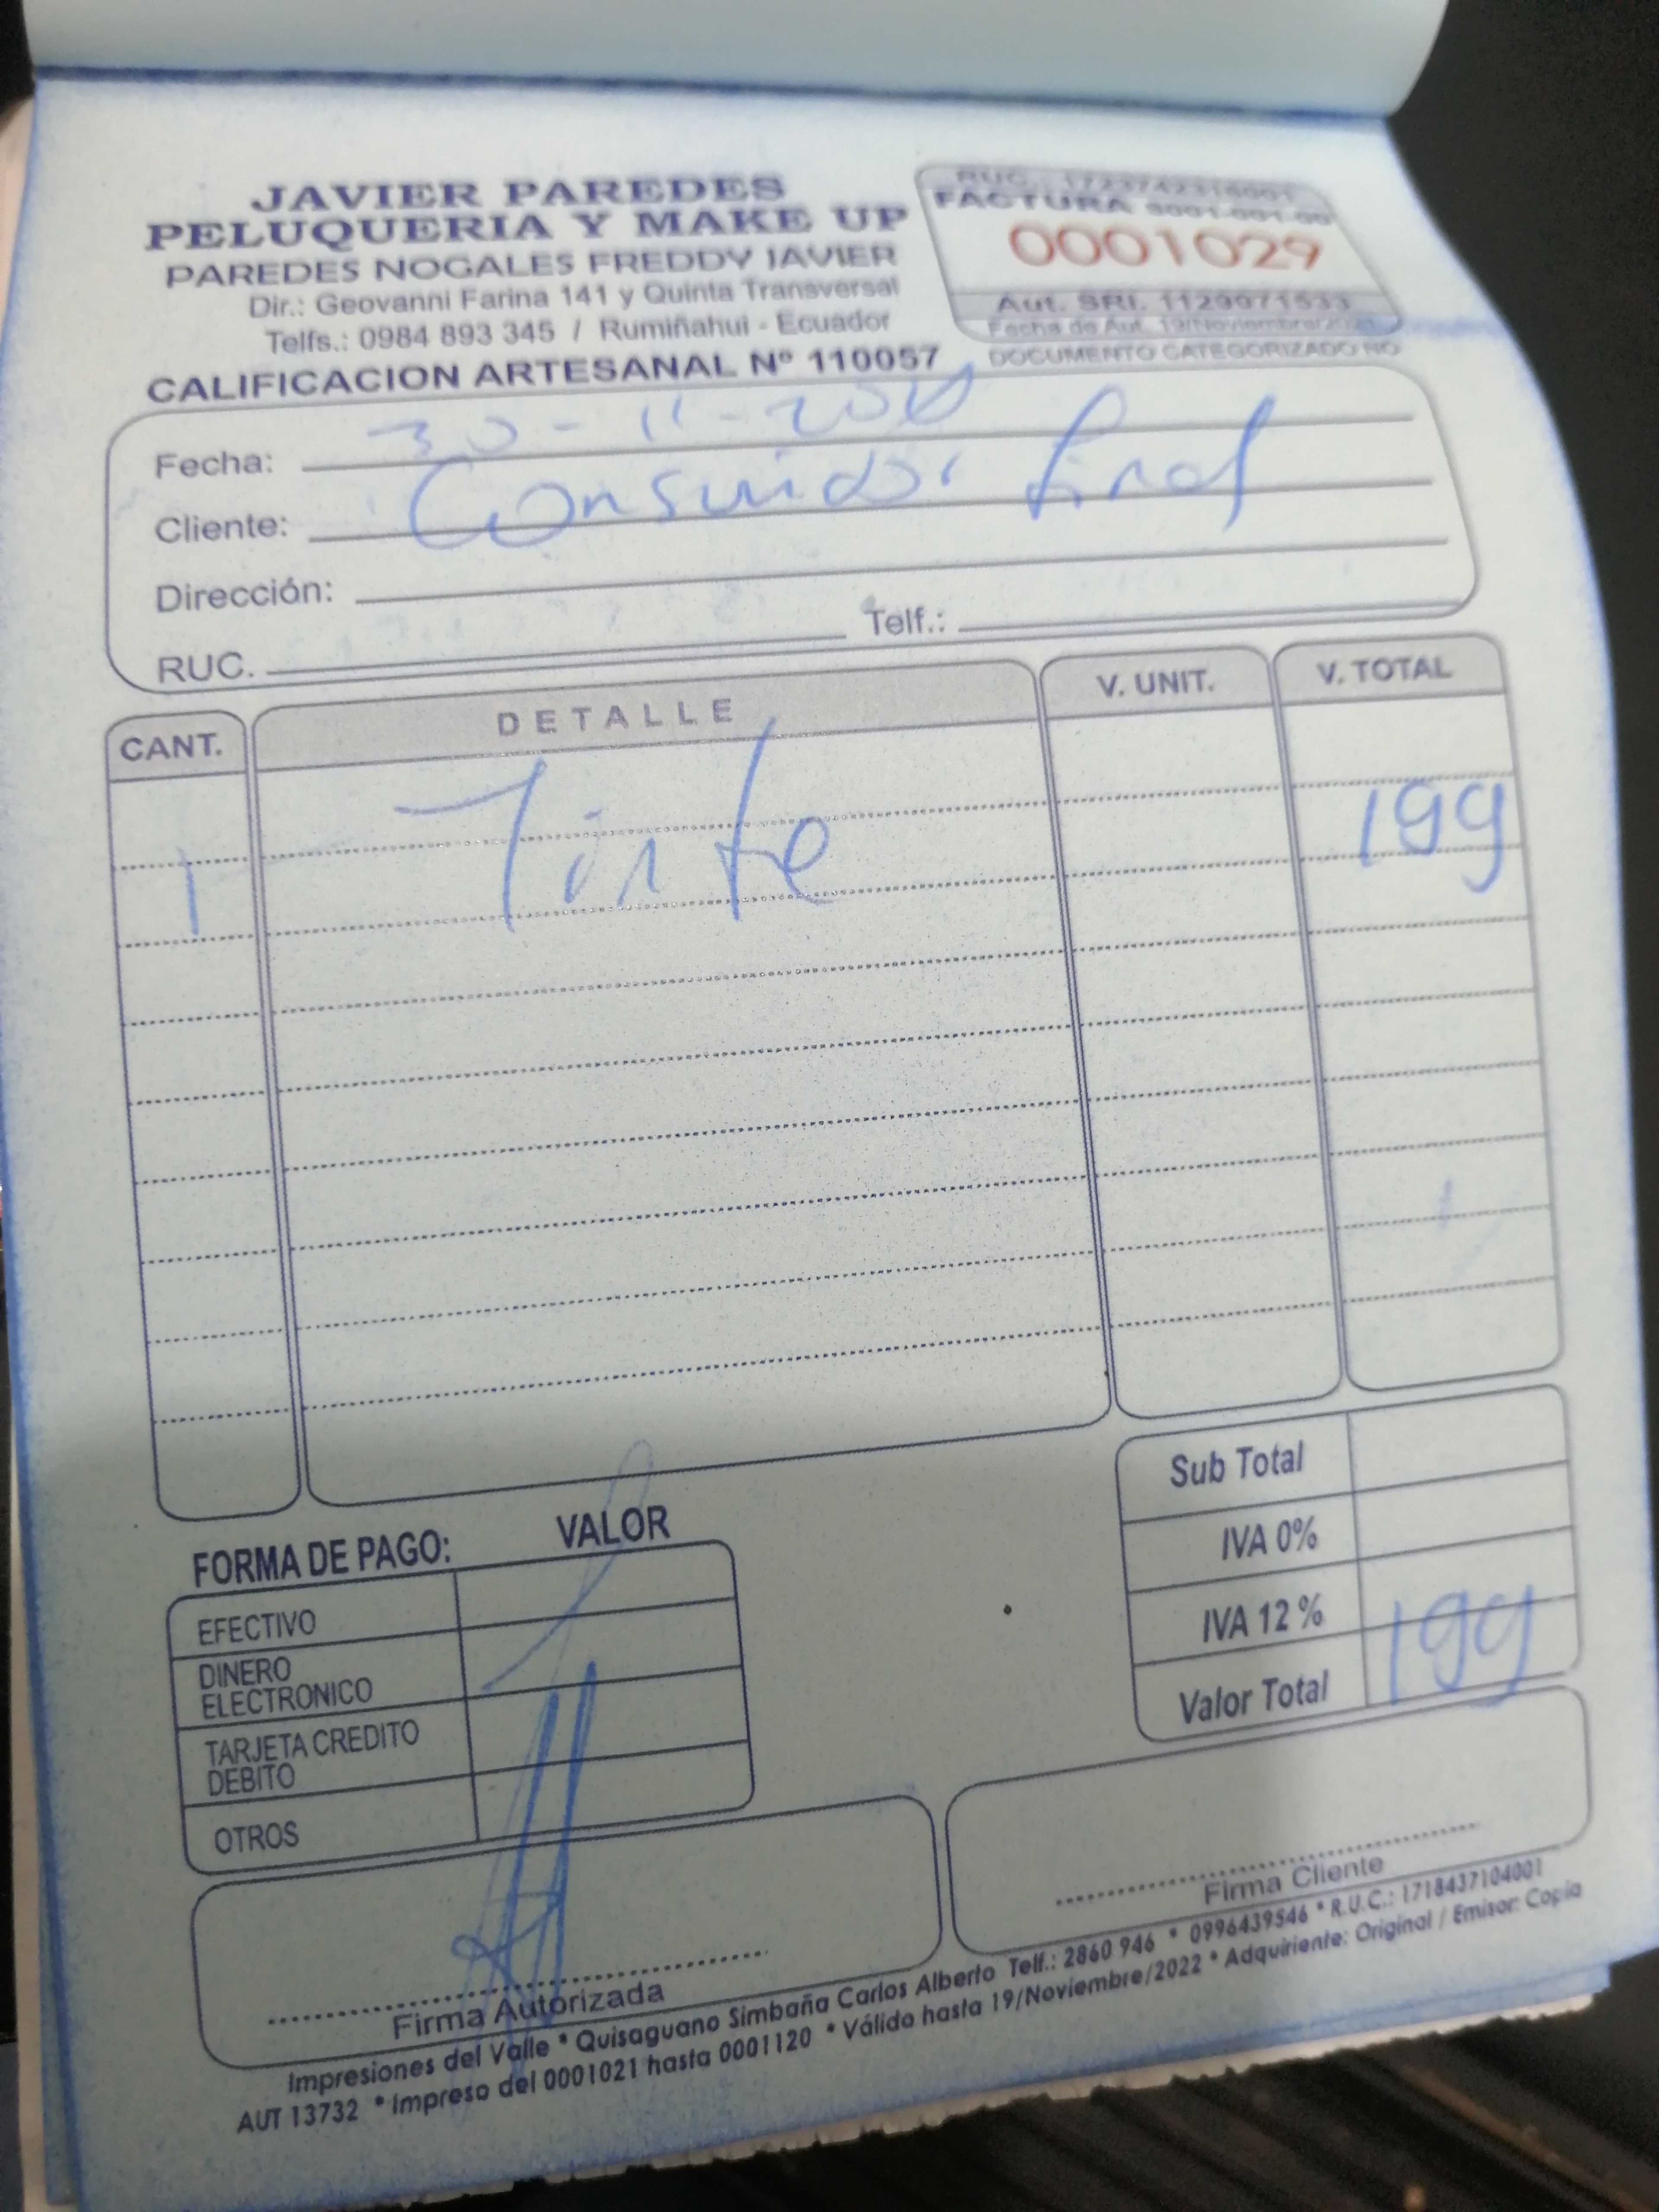 JAVIER PAREDES
PELUQUERIA Y MAKE UP
PAREDES NOGALES FREDDY JAVIER
Dir.: Geovanni Farina 141 y Quinta Transversal
Telfs.: 0984 893 345 / Rumiñahui - Ecuador
CALIFICACION ARTESANAL Nº 110057
RUC.: 1723742318001
FACTURA S001-001-00
0001029
Aut. SRI. 1129971533
Fecha de Aut. 19/Noviembre/2021
DOCUMENTO CATEGORIZADO NO
Fecha: 30-11-
Cliente: Consumidor final
Dirección:
RUC. Telf.:
CANT. DETALLE V. UNIT. V. TOTAL
1 Tinte 199
Sub Total
IVA 0%
IVA 12 %
Valor Total 199
FORMA DE PAGO: VALOR
EFECTIVO
DINERO
ELECTRONICO
TARJETA CREDITO
DEBITO
OTROS
Firma Autorizada
Firma Cliente
Impresiones del Valle * Quisaguano Simbaña Carlos Alberto Telf.: 2860 946 * 0996439546 * R.U.C.: 1718437104001
AUT 13732 * Impreso del 0001021 hasta 0001120 * Válido hasta 19/Noviembre/2022 * Adquiriente: Original / Emisor: Copia